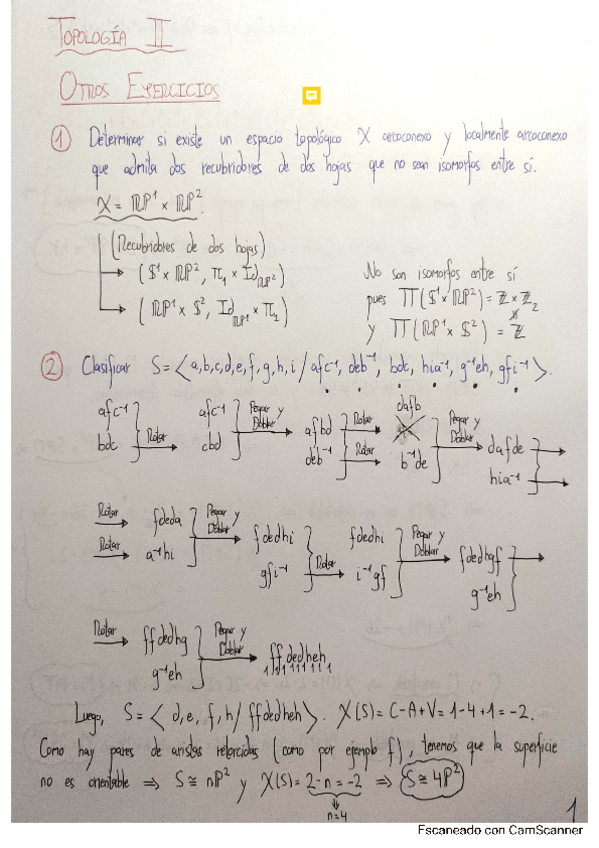 TOPOLOGÍA II
OTROS EJERCICIOS
① Determinar si existe un espacio topológico X arcoconexo y localmente arcoconexo
que admita dos recubridores de dos hojas que no sean isomorfos entre sí.
X = ℝP¹ × ℝP².
(Recubridores de dos hojas)
→ (𝕊¹ × ℝP², Π₁ × Id_ℝP²)
→ (ℝP¹ × 𝕊², Id_ℝP¹ × Π₂)
No son isomorfos entre sí
pues Π(𝕊¹ × ℝP²) = ℤ × ℤ₂
∦
y Π(ℝP¹ × 𝕊²) = ℤ
② Clasificar S = ⟨a,b,c,d,e,f,g,h,i / afc⁻¹, deb⁻¹, bdc, hia⁻¹, g⁻¹eh, gfi⁻¹⟩.
afc⁻¹
bdc
Rotar
afc⁻¹
cbd
Pegar y
Doblar
afbd
deb⁻¹
Rotar
Rotar
dafb
b⁻¹de
Pegar y
Doblar
dafde
hia⁻¹
Rotar
Rotar
fdeda
a⁻¹hi
Pegar y
Doblar
fdedhi
gfi⁻¹
Rotar
fdedhi
i⁻¹gf
Pegar y
Doblar
fdedhgf
g⁻¹eh
Rotar
ffdedhg
g⁻¹eh
Pegar y
Doblar
ffdedheh
1 1 1 1 1 1 1 1
Luego, S = ⟨d, e, f, h / ffdedheh⟩. X(S) = C-A+V = 1-4+1 = -2.
Como hay pares de aristas retorcidas (como por ejemplo f), tenemos que la superficie
no es orientable ⟹ S ≅ nP² y X(S) = 2-n = -2 ⟹ S ≅ 4P²
n=4
1
Escaneado con CamScanner